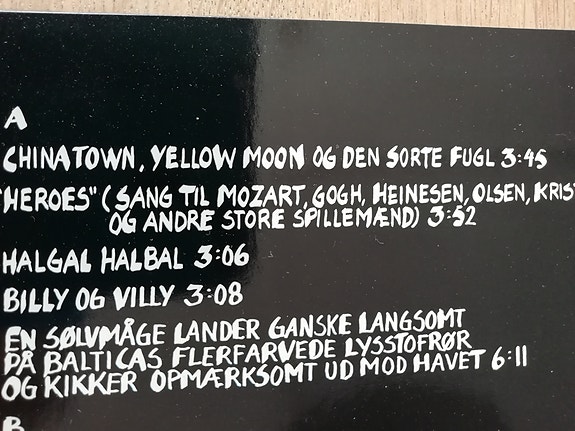 A
CHINATOWN, YELLOW MOON OG DEN SORTE FUGL 3:45
"HEROES" (SANG TIL MOZART, GOGH, HEINESEN, OLSEN, KRIST
OG ANDRE STORE SPILLEMÆND) 3:52
HALGAL HALBAL 3:06
BILLY OG VILLY 3:08
EN SØLVMÅGE LANDER GANSKE LANGSOMT
PÅ BALTICAS FLERFARVEDE LYSSTOFRØR
OG KIKKER OPMÆRKSOMT UD MOD HAVET 6:11
B